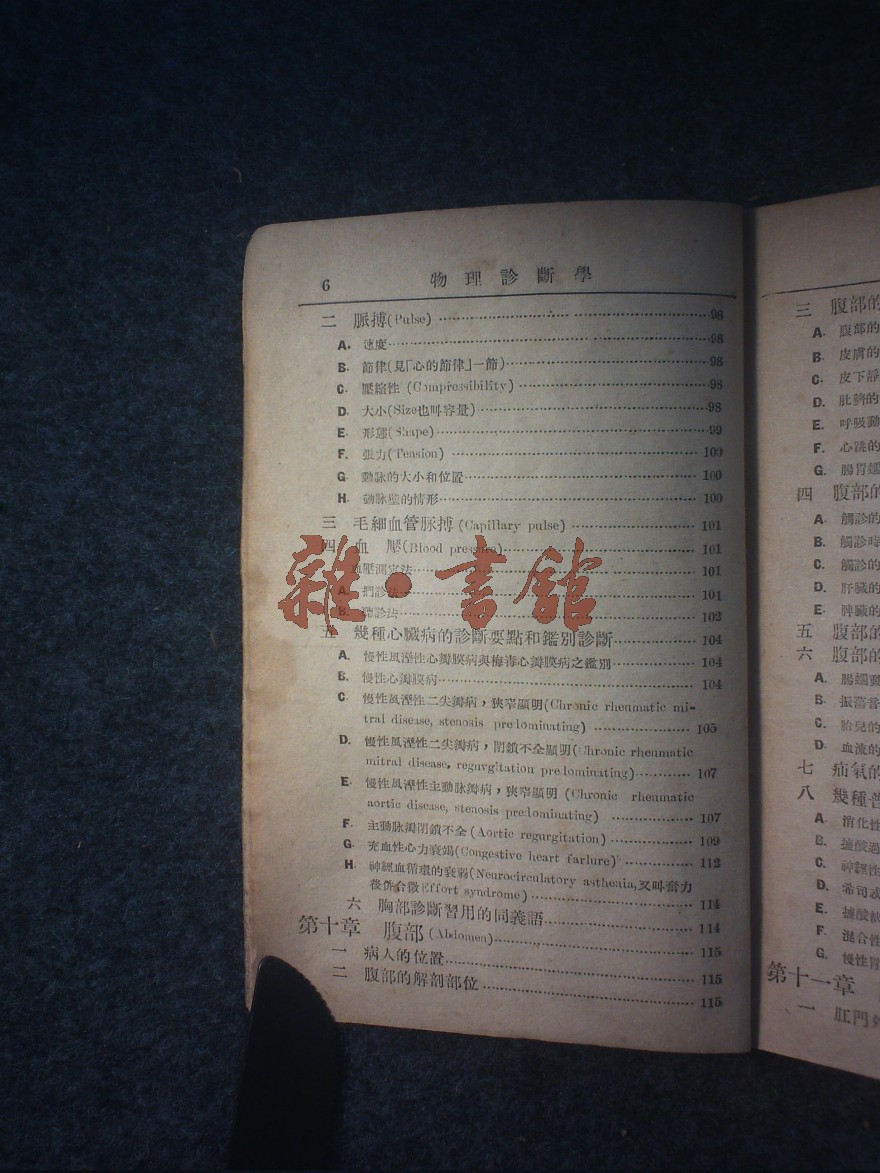 6 物理診斷學
二 脈搏(Pulse) 98
A. 速度 98
B. 節律(見「心的節律」一節) 98
C. 壓縮性 (Compressibility) 98
D. 大小(Size也叫容量) 98
E. 形態(Shape) 99
F. 張力(Tension) 100
G. 動脉的大小和位置 100
H. 動脉壁的情形 100
三 毛細血管脈搏 (Capillary pulse) 101
四 血 壓(Blood pressure) 101
血壓測定法 101
A. 捫診法 101
B. 聽診法 102
五 幾種心臟病的診斷要點和鑑別診斷 104
A. 慢性風溼性心瓣膜病與梅毒心瓣膜病之鑑別 104
B. 慢性心瓣膜病 104
C. 慢性風溼性二尖瓣病，狹窄顯明(Chronic rheumatic mi-
tral disease, stenosis predominating) 105
D. 慢性風溼性二尖瓣病，閉鎖不全顯明(Chronic rheumatic
mitral disease, reguvgitation predominating) 107
E. 慢性風溼性主動脉瓣病，狹窄顯明 (Chronic rheumatic
aortic disease, stenosis predominating) 107
F. 主動脉瓣閉鎖不全 (Aortic regurgitation) 109
G. 充血性心力衰竭(Congestive heart farlure) 112
H. 神經血循環的衰弱(Neurocirculatory astheaia,又叫奮力
後併合徵Effort syndrome) 114
六 胸部診斷習用的同義語 114
第十章 腹部 (Abdomen) 115
一 病人的位置 115
二 腹部的解剖部位 115
雜·書館
三 腹部的
A. 腹部的
B. 皮膚的
C. 皮下靜
D. 肚臍的
E. 呼吸動
F. 心跳的
G. 腸胃蠕
四 腹部的
A. 觸診的
B. 觸診時
C. 觸診的
D. 肝臟的
E. 脾臟的
五 腹部的
六 腹部的
A. 腸蠕動
B. 振蕩音
C. 胎兒的
D 血流的
七 疝氣的
八 幾種普
A. 消化性
B. 據酸過
C. 神經性
D. 希司
E. 據酸缺
F. 混合性
G. 慢性胃
第十一章
一 肛門外